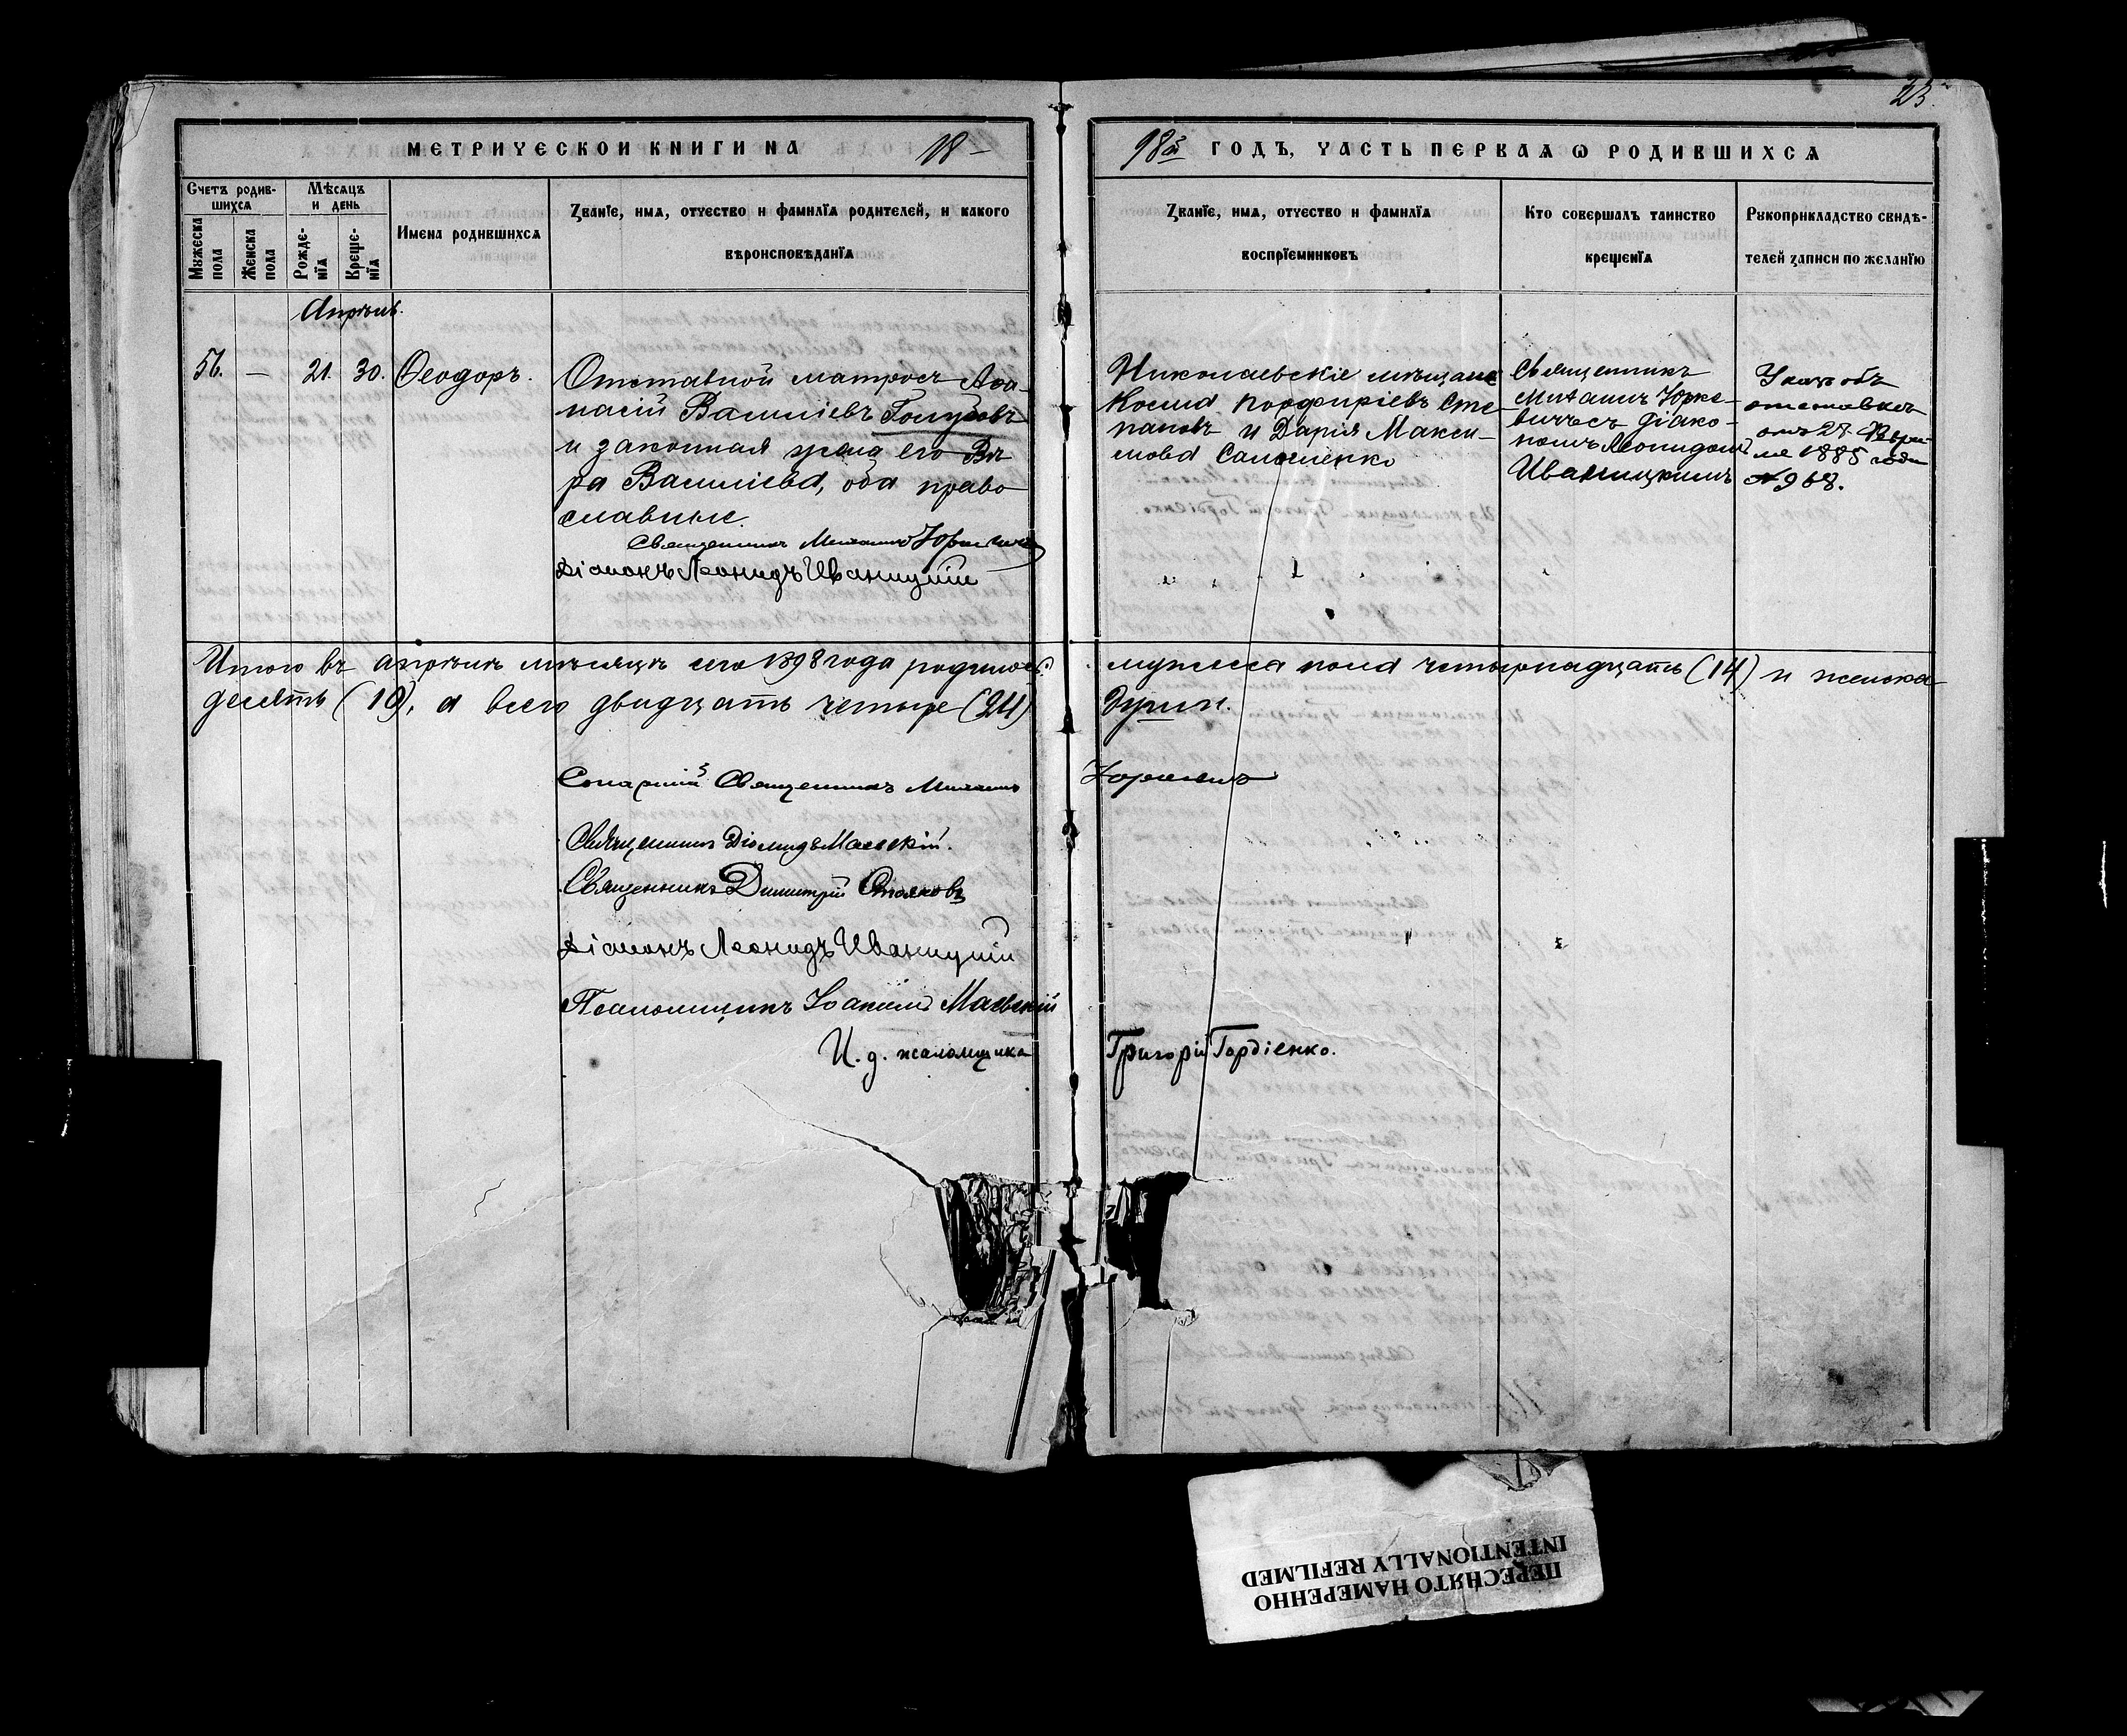 23.
МЕТРИЧЕСКОЙ КНИГИ НА 18
98й ГОДЪ, ЧАСТЬ ПЕРВАЯ Ѡ РОДИВШИХСЯ
Счетъ родившихся
Мужеска пола
Женска пола
Мѣсяцъ и день
Рожденїя
Крещенїя
Имена родившихся
Званїе, имя, отчество и фамилїя родителей, и какого
вѣроисповѣданїя
Званїе, имя, отчество и фамилїя
воспрїемниковъ
Кто совершалъ таинство
крещенїя
Рукоприкладство свидѣ-
телей записи по желанїю
Апрѣль.
56. — 21. 30. Ѳеодоръ.
Отставной матросъ Аѳа-
насій Васильевъ Голубовъ
и законная жена его Вѣ
ра Васильева, оба право
славные.
Священникъ Михаилъ Юркевичъ
Діаконъ Леонидъ Иваницкій
Николаевскіе мѣщане
Косма Порфиріевъ Сте-
пановъ и Дарія Макси-
мова Самойленко
Священникъ
Михаилъ Юрке-
вичъ съ діако-
номъ Леонидомъ
Иваницкимъ
Указъ объ
отставкѣ
отъ 27
1885 года
№ 968.
Итого въ апрѣлѣ мѣсяцѣ сего 1898 года родилось: мужеска пола четырнадцать (14) и женска
десять (10), а всего двадцать четыре (24) души.
Священникъ Михаилъ Юркевичъ
Священникъ Діомидъ Маевскій.
Священникъ Димитрій Стояновъ
Діаконъ Леонидъ Иваницкій
Псаломщикъ Іоакимъ Маевскій
И. д. псаломщика Григорій Гордіенко.
ПЕРЕСНЯТО НАМЕРЕННО
INTENTIONALLY REFILMED